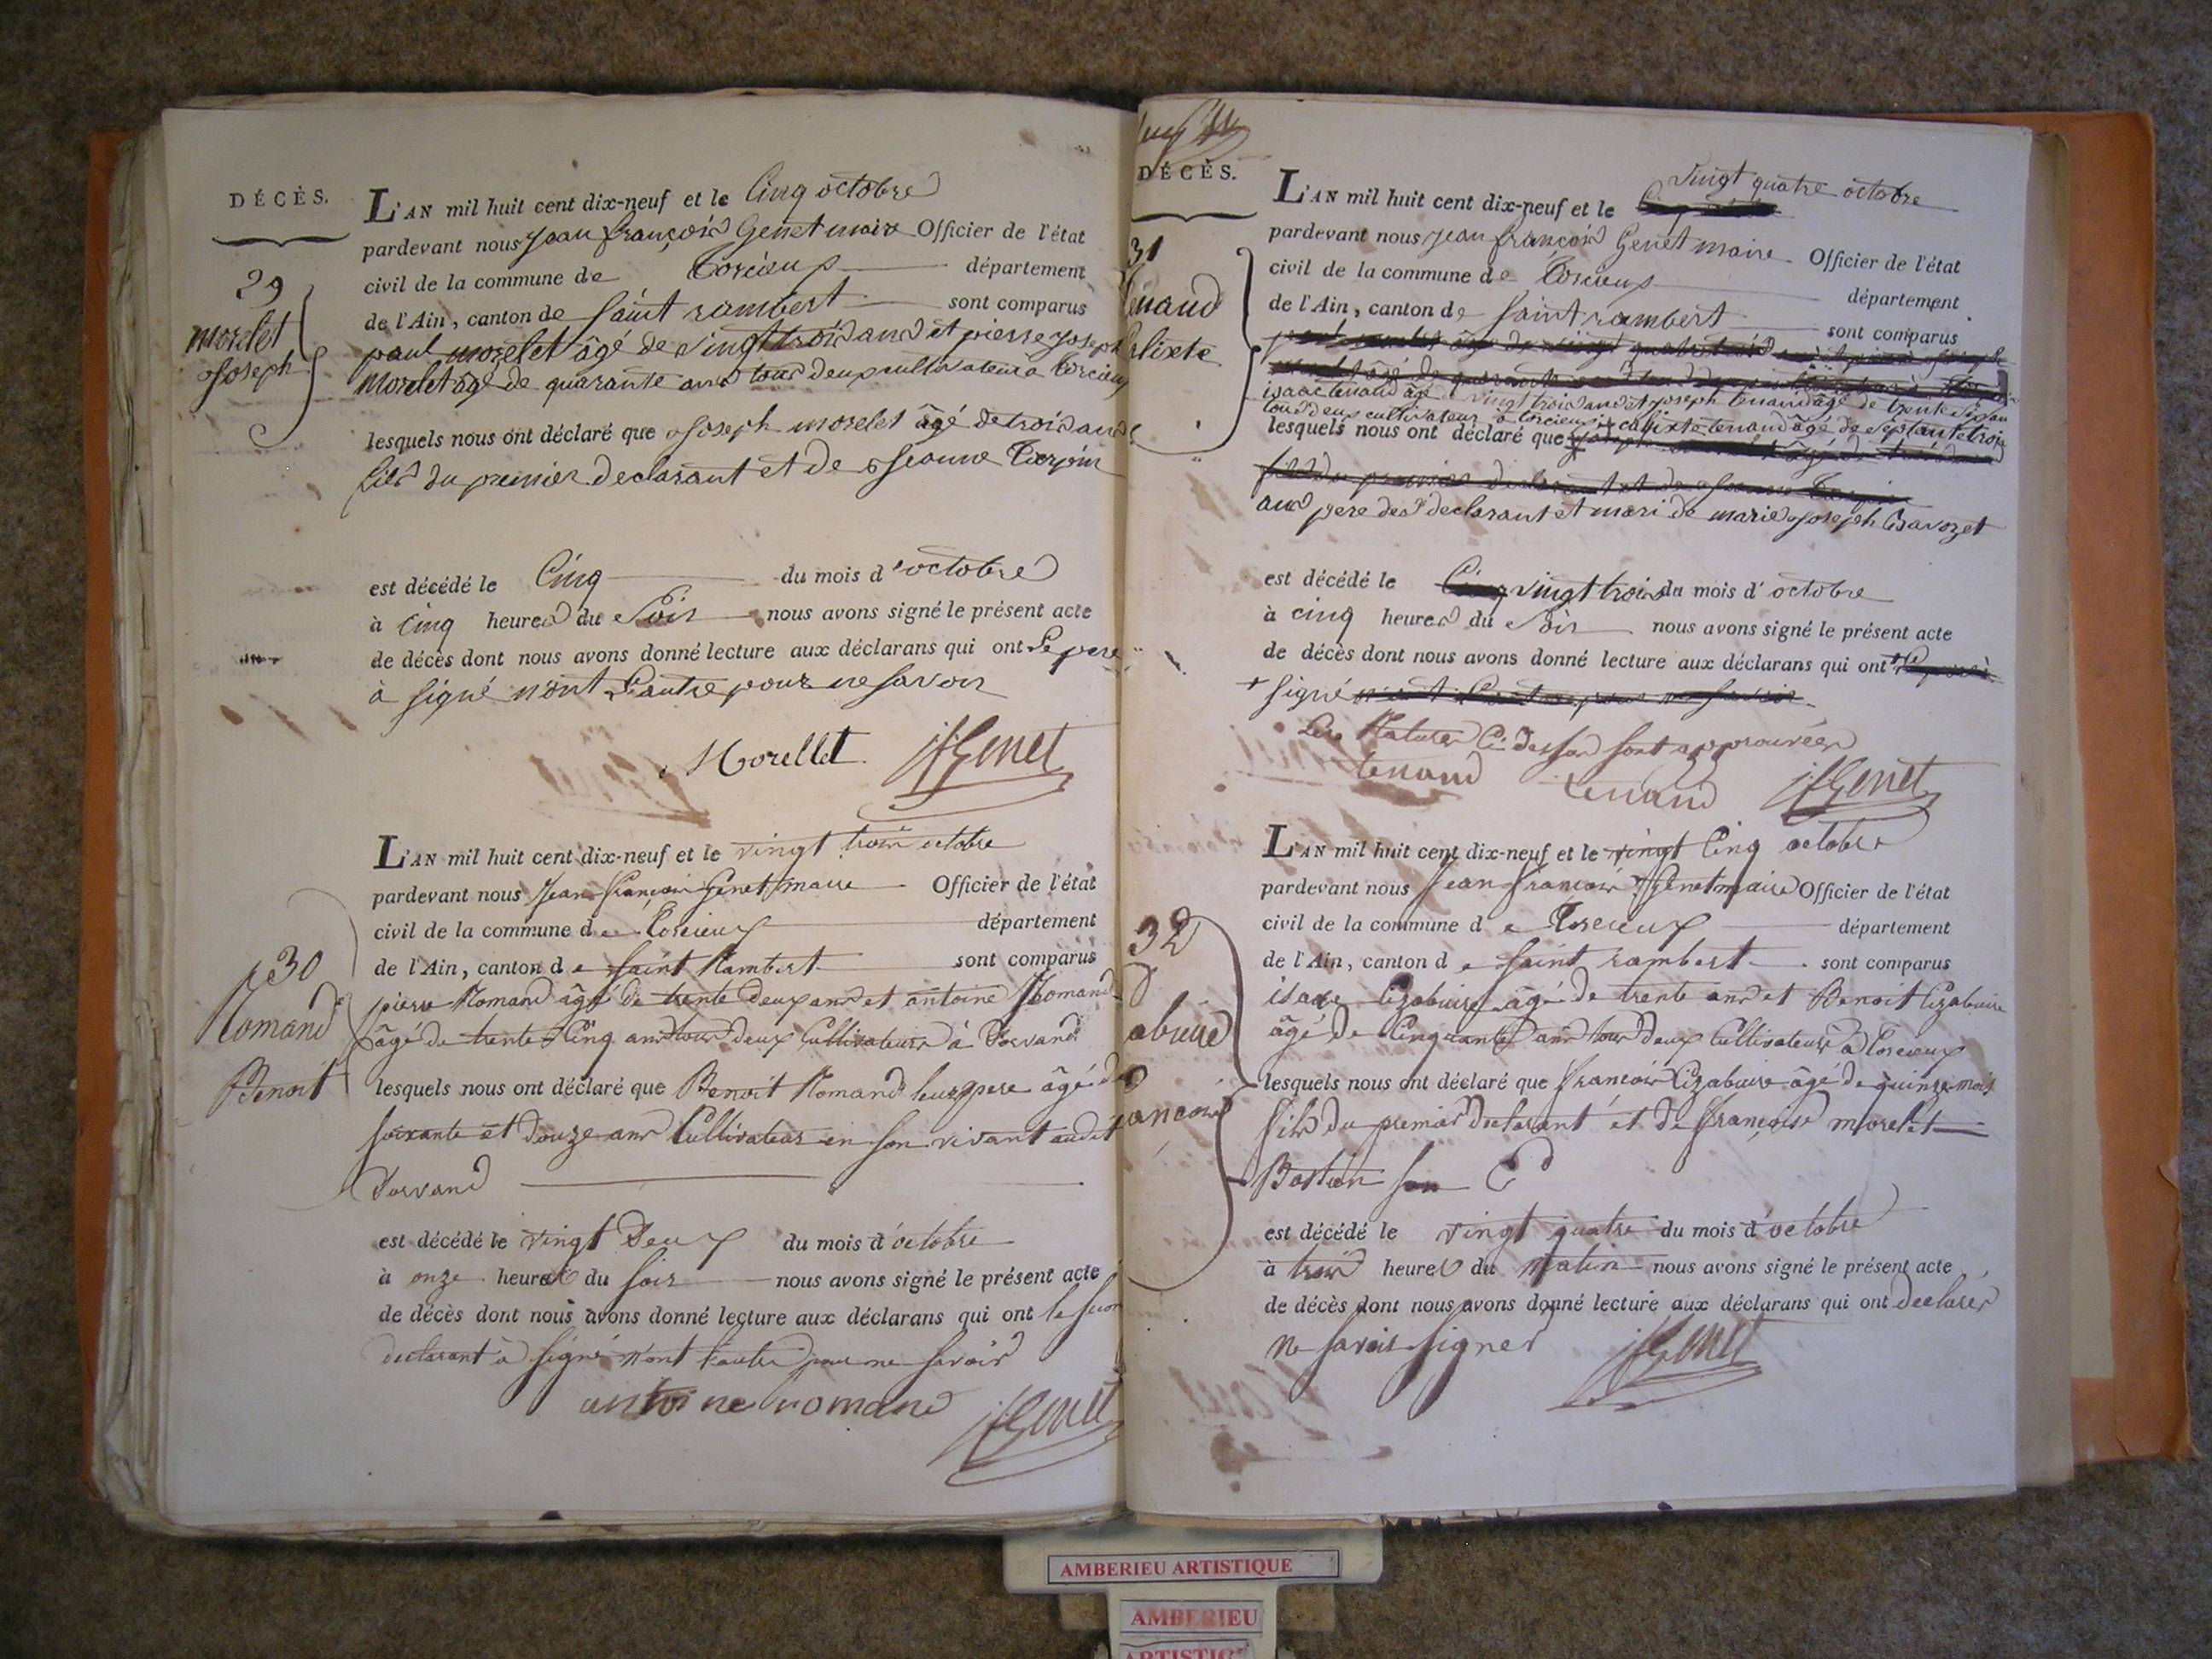 DÉCÈS.
29
morelet
joseph
L'AN mil huit cent dix-neuf et le Cinq octobre
pardevant nous jean françois Genet maire Officier de l'état
civil de la commune de Torcieux département
de l'Ain, canton de saint rambert sont comparus
paul morelet âgé de vingt trois ans et pierre joseph
morelet âgé de quarante ans tous deux cultivateur a torcieux
lesquels nous ont déclaré que joseph morelet âgé de trois ans
fils du premier declarant et de jeanne
est décédé le Cinq du mois d'octobre
à cinq heures du Soir nous avons signé le présent acte
de décès dont nous avons donné lecture aux déclarans qui ont Le pere
à signé n'ont L'autre pour ne savoir
Morellet jfGenet
30
Romand
Benoit
L'AN mil huit cent dix-neuf et le vingt trois octobre
pardevant nous Jean françois Genet maire Officier de l'état
civil de la commune de Torcieux département
de l'Ain, canton de saint Rambert sont comparus
pierre Romand âgé de trente deux ans et antoine Romand
âgé de trente Cinq ans tous deux Cultivateurs à Dorvand
lesquels nous ont déclaré que Benoit Romand leur pere âgé de
soixante et douze ans Cultivateur en son vivant audit
Dorvand
est décédé le vingt Deux du mois d'octobre
à onze heures du soir nous avons signé le présent acte
de décès dont nous avons donné lecture aux déclarans qui ont le secon
declarant à signé n'ont l'autre pour ne savoir
antoine romand jfGenet
DÉCÈS.
31
tenand
Calixte
L'AN mil huit cent dix-neuf et le vingt quatre octobre
pardevant nous jean françois Genet maire Officier de l'état
civil de la commune de Torcieux département
de l'Ain, canton de saint rambert sont comparus
isaac tenand âgé vingt trois ans et joseph tenand âgé de trente six ans
tous deux cultivateur a torcieux
lesquels nous ont déclaré que calixte tenand âgé de septante trois
ans pere des declarant et mari de marie joseph
est décédé le vingt trois du mois d'octobre
à cinq heures du Soir nous avons signé le présent acte
de décès dont nous avons donné lecture aux déclarans qui ont
signé
Les Ratures Ci dessus sont approuvées
tenand tenand jfGenet
32
L'AN mil huit cent dix-neuf et le vingt Cinq octobre
pardevant nous Jean francois Genet maire Officier de l'état
civil de la commune de Torcieux département
de l'Ain, canton de saint rambert sont comparus
isaac Cizabuire âgé de trente ans et Benoit Cizabuire
âgé de Cinquante ans tous deux Cultivateurs à Torcieux
lesquels nous ont déclaré que françois Cizabuire âgé de quinze mois
fils du premier declarant et de françoise morelet
est décédé le vingt quatre du mois d'octobre
à trois heures du Matin nous avons signé le présent acte
de décès dont nous avons donné lecture aux déclarans qui ont declarés
ne savoir signer jfGenet
AMBERIEU ARTISTIQUE
AMBERIEU
ARTISTIQ